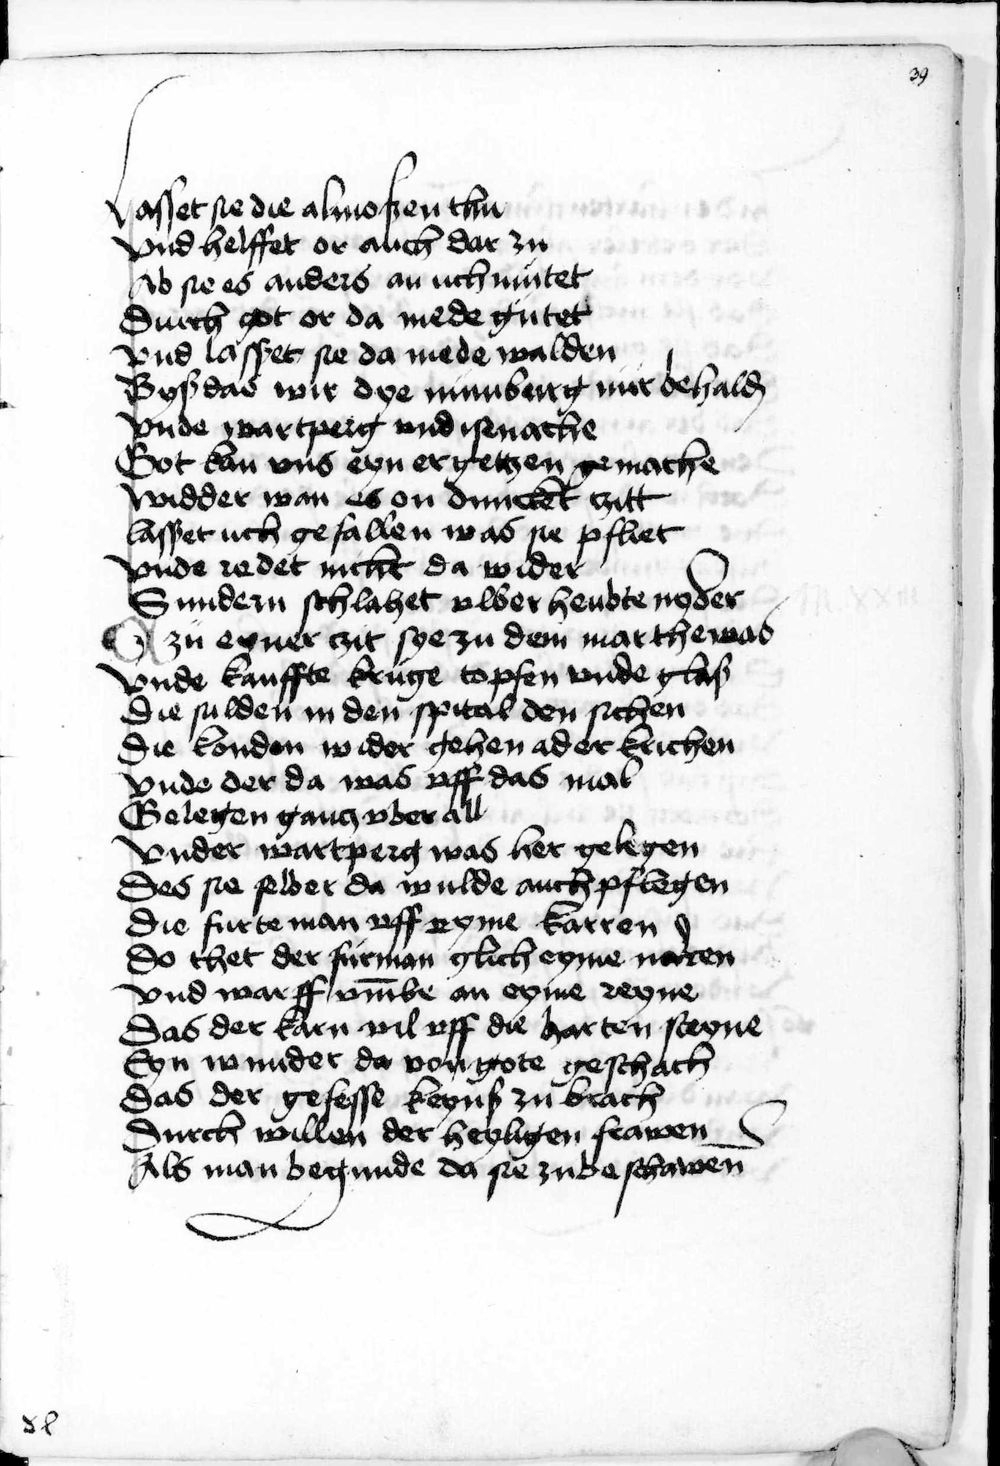 39
Lasset sie die almoßen thu
Vnd helffet or auch dar zu
Ab sie es anders an uch mutet
Durch got or da mede gutet
Vnd lasset sie da mede walden
Byß das wir dye numburg mir behald
Vnde wartperg vnd isenache
Got kan vns eyn ergetzen gemache
Widder wan es on duncket czitt
lasset uch gefallen was sie pfliet
Vnde redet nicht da wider
Sundern schlahet vwer heubte nyder
zu eyner czit sye zu dem marthe was
Vnde kauffte kruge topfen vnde glaß
Die sulden in den spital den sichen
Die konden wider gehen ader krichen
Vnde der da was vff das mal
Gelegen gancz vber all
Vnder wartperg was her gelegen
Des sie selber da wulde auch pflegen
Die furte man vff eyme karren
Do thet der furman glich eyme narren
Vnd warff vmbe an eyme reyne
Das der karn vil vff die harten steyne
Eyn wunder da von gote geschach
Das der gefesse keynß zu brach
Durch willen der heyligen frawen
Als man begunde da sie zu beschawen